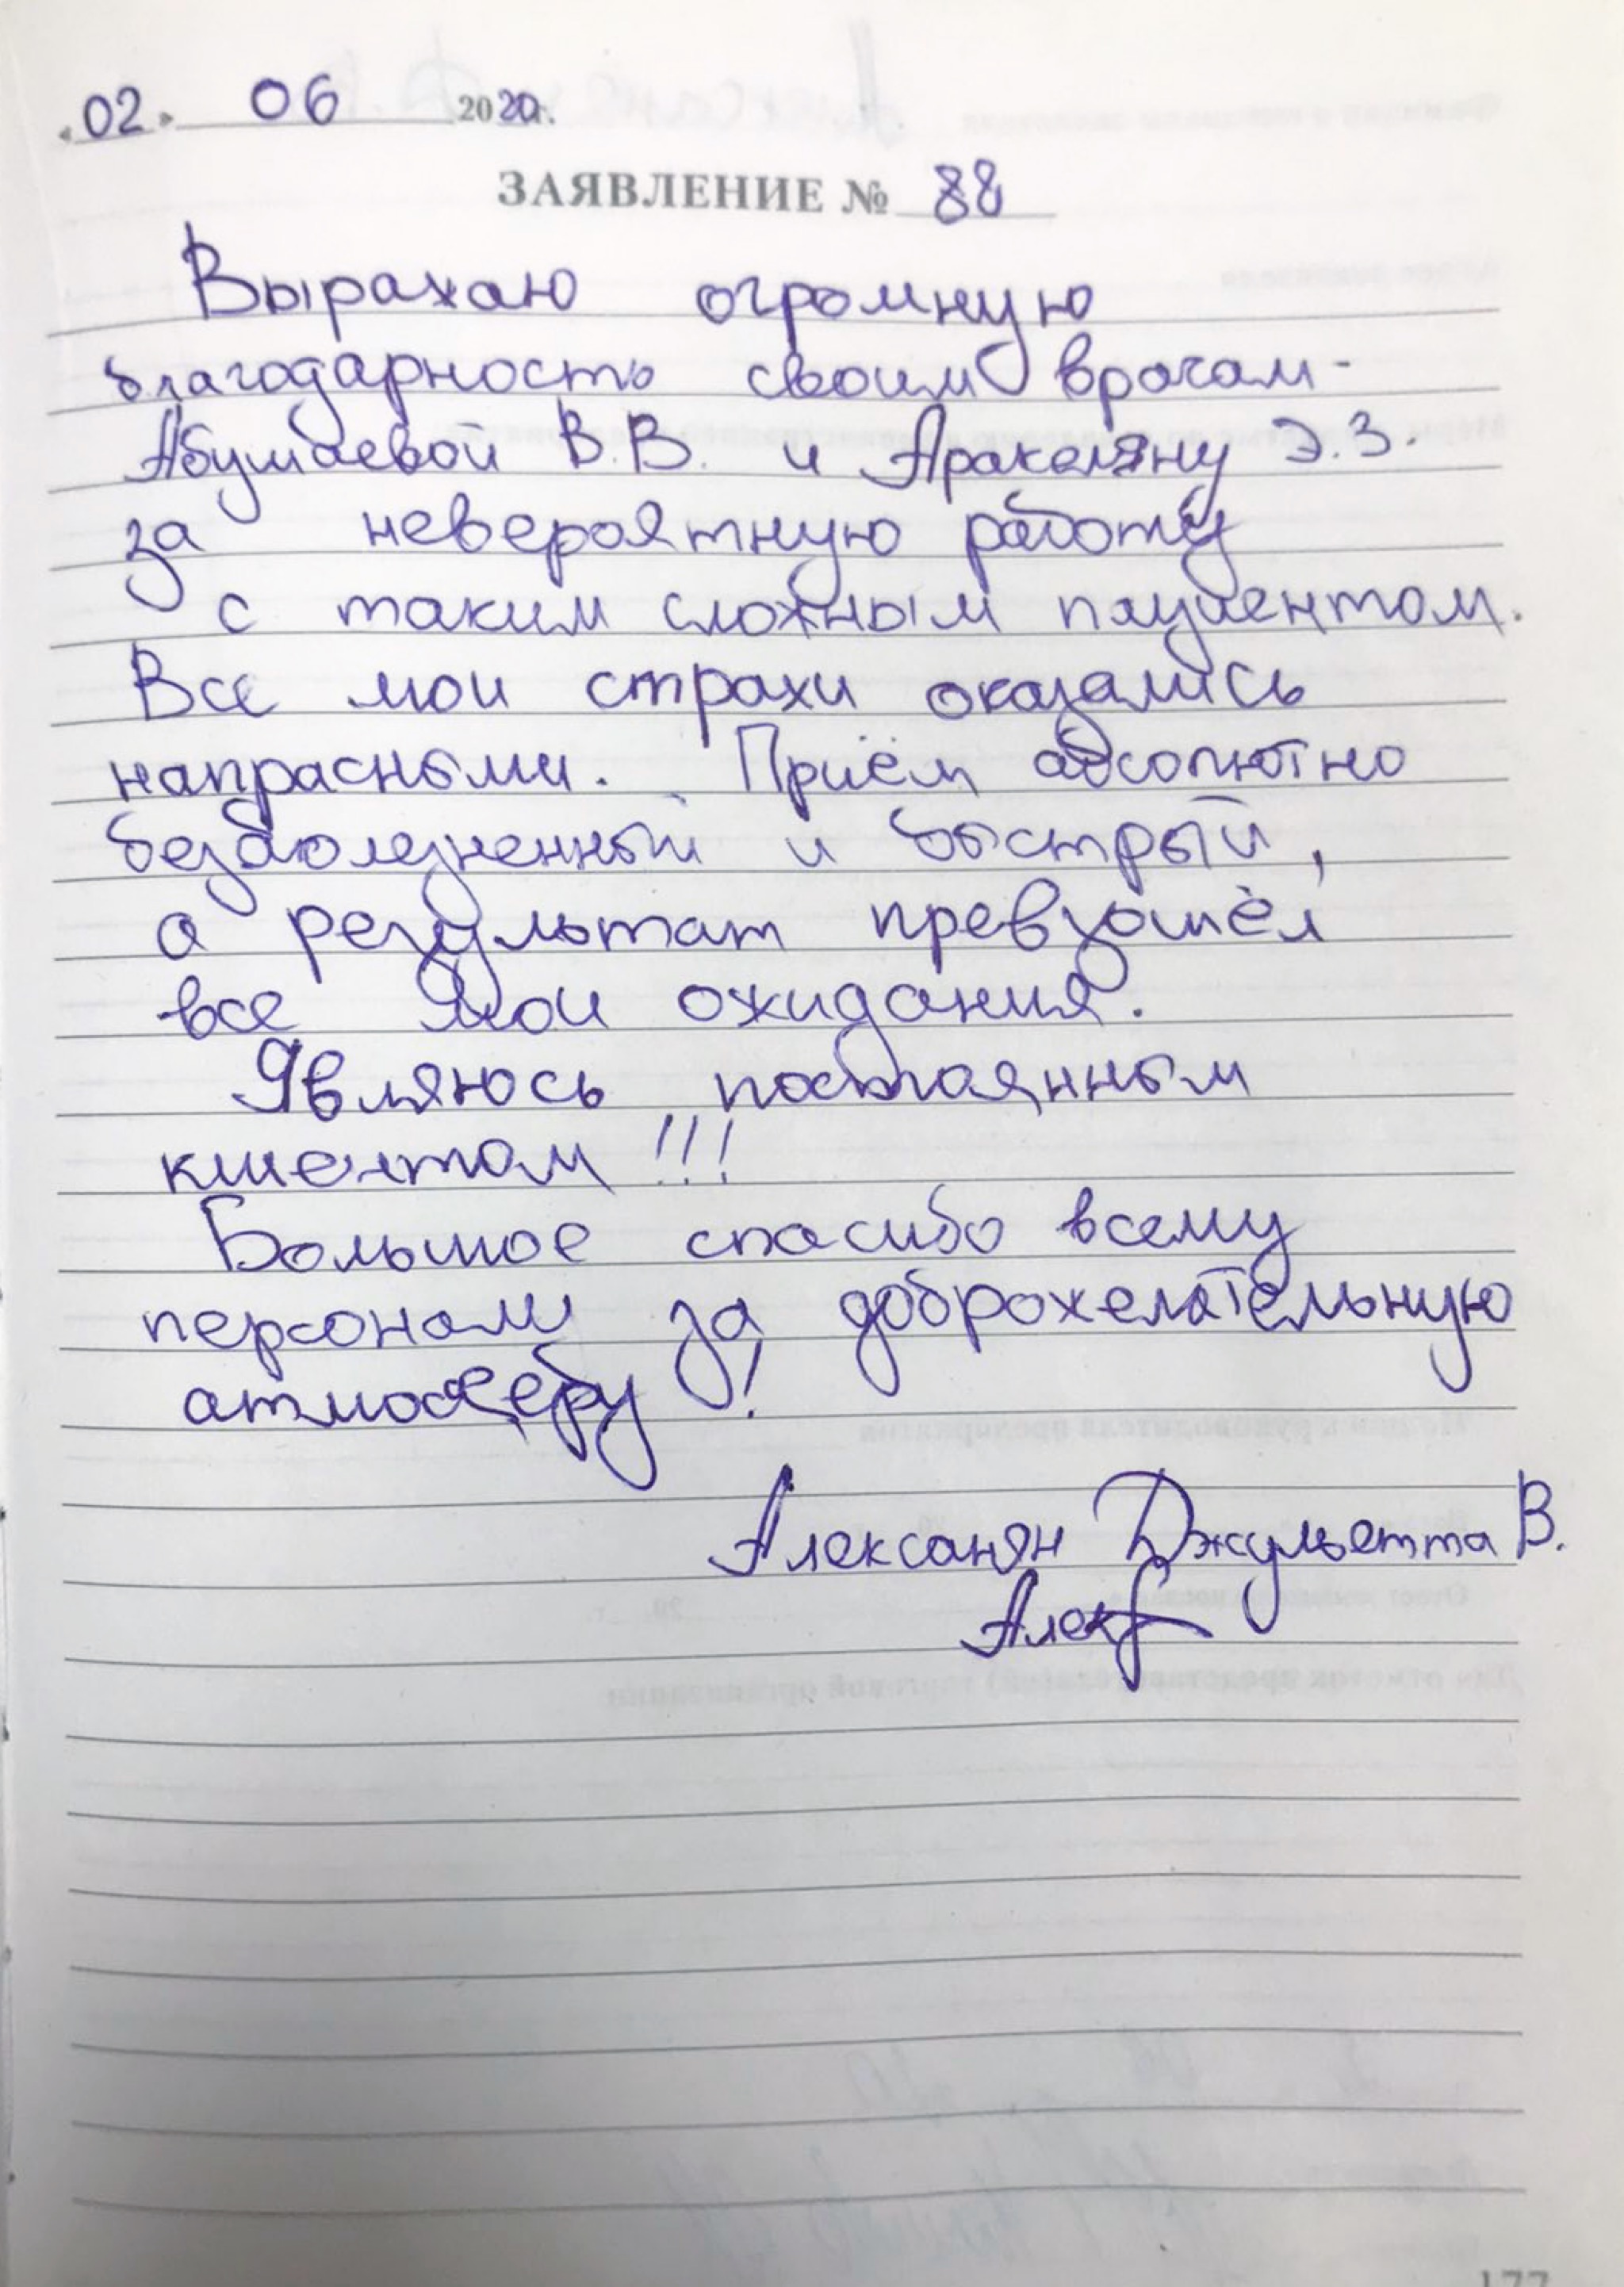 «02» 06 2020г.
ЗАЯВЛЕНИЕ № 88
Выражаю огромную
благодарность своим врачам -
Абушаевой В.В. и Аракеляну Э.З.
за невероятную работу
с таким сложным пациентом.
Все мои страхи оказались
напрасными. Приём абсолютно
безболезненный и быстрый,
а результат превзошёл
все мои ожидания.
Являюсь постоянным
клиентом!!!
Большое спасибо всему
персоналу за доброжелательную
атмосферу!
Алексанян Джульетта В.
Алек
177